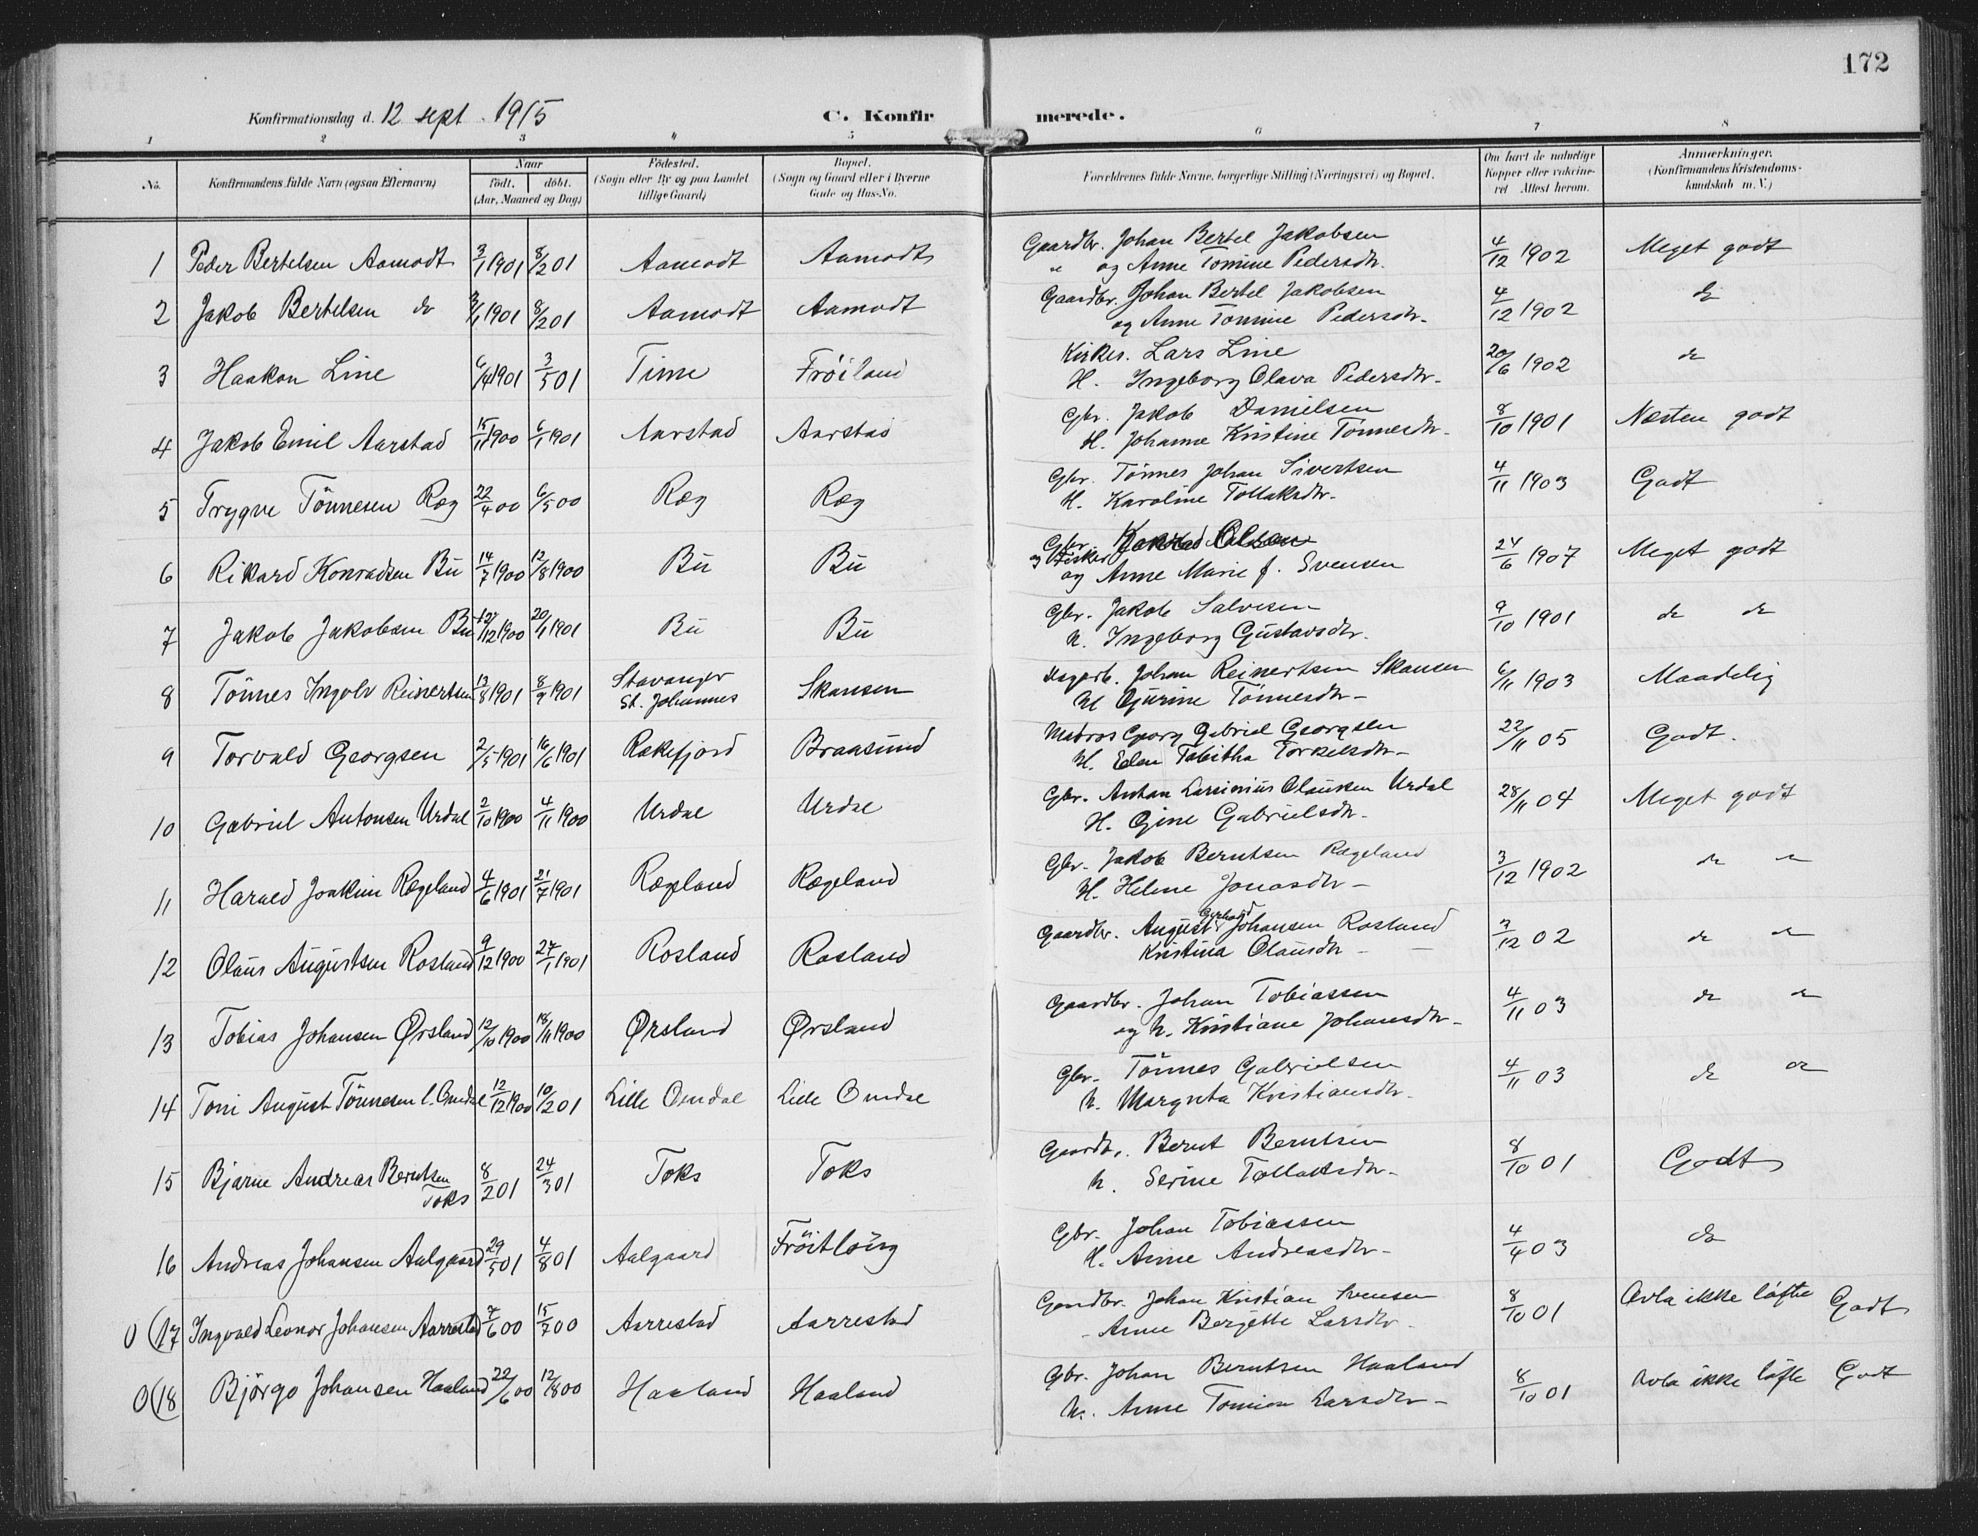 172
Konfirmationsdag d. 12 sept. 1915
C. Konfirmerede.
1 2 3 " 5 6 7 8
No. Konfirmandens fulde Navn (ogsaa Efternavn) Naar født. døbt. (Aar, Maaned og Dag) Fødested. (Sogn eller By og paa Landet tillige Gaard) Bopæl. (Sogn og Gaard eller i Byerne Gade og Hus-No. Forældrenes fulde Navne, borgerlige Stilling (Næringsvei) og Bopæl. Om havt de naturlige Kopper eller vakcineret Attest herom. Anmærkninger. (Konfirmandens Kristendomskundskab m. V.)
1 Peder Bertelsen Aamodt 3/1 1901 8/2 01 Aamodt Aamodt Gaardbr. Johan Bertel Jakobsen
" og Anne Tomine Pedersdtr. 4/12 1902 Meget godt
2 Jakob Bertelsen do 3/1 1901 8/2 01 Aamodt Aamodt Gaardbr. Johan Bertel Jakobsen
og Anne Tomine Pedersdtr. 4/12 1902 do
3 Haakon Line 6/4 1901 3/5 01 Time Frøiland Kirkes. Lars Line
H. Ingeborg Olava Pedersdtr. 20/6 1902 do
4 Jakob Emil Aarstad 15/11 1900 6/1 1901 Aarstad Aarstad Gbr. Jakob Danielsen
H. Johanne Kristine Tønnesdtr. 8/10 1901 Næsten godt
5 Trygve Tönnesen Ræg 22/4 00 6/5 00 Ræg Ræg Gbr. Tönnes Johan Sivertsen
H. Karoline Tollaksdtr. 4/11 1903 Godt
6 Rikard Konradsen Bu 14/7 1900 12/8 1900 Bu Bu Gbr. Konrad Olsen
og Fisker
og Anne Marie f. Svensen 24/6 1907 Meget godt
7 Jakob Jakobsen Bu 12/12 1900 20/1 1901 Bu Bu Gbr. Jakob Salvesen
H. Ingeborg Gustavsdtr. 9/10 1901 do do
8 Tönnes Ingolv Reinertsen 13/8 1901 8/9 1901 Stavanger
St. Johannes Skansen Dagarb. Johan Reinertsen Skansen
H. Gurine Tönnesdtr. 6/11 1903 Maadelig
9 Torvald Georgsen 2/5 1901 16/6 1901 Rækefjord Braasund Matros Georg Gabriel Georgsen
H. Elen Tabitha Torkelsdtr. 22/11 05 Godt.
10 Gabriel Antonsen Urdal 2/10 1900 4/11 1900 Urdal Urdal Gbr. Anton Larsinius Clausen Urdal
H. Gine Gabrielsdtr. 28/11 04 Meget godt
11 Harald Joakim Rægeland 4/6 1901 21/7 1901 Rægeland Rægeland Gbr. Jakob Berntsen Rægeland
H. Helene Jonasdtr. 3/12 1902 do "
12 Claus Augustsen Rosland 9/12 1900 27/1 1901 Rosland Rosland Gaardbr. August Gerhard Johansen Rosland
Kristina Clausdtr. 3/12 02 do "
13 Tobias Johansen Ørsland 12/10 1900 18/11 1900 Ørsland Ørsland Gaardbr. Johan Tobiassen
og H. Kristiane Johansdtr. 4/11 03 do do
14 Toni August Tönnesen l. Omdal 12/12 1900 10/2 01 Lille Omdal Lille Omdal Gbr. Tönnes Gabrielsen
H. Margreta Kristiansdtr. 4/11 03 do do
15 Bjarne Andreas Berntsen
Toks 8/2 01 24/3 01 Toks Toks Gaardb. Bernt Berntsen
H. Serine Tollaksdtr. 8/10 01 Godt
16 Andreas Johansen Aalgaard 29/5 01 4/8 01 Aalgaard Frøitløug Gbr. Johan Tobiassen
H. Anne Andreasdtr. 4/4 03 do
0 (17 Ingvald Leonor Johansen Aarrestad 7/6 00 15/7 00 Aarrestad Aarrestad Gaardbr. Johan Kristian Svensen
Anne Bergette Larsdtr. 8/10 01 Avla ikke løfte Godt
0 (18 Bjørgo Johansen Haaland 22/6 00 12/8 00 Haaland Haaland Gbr. Johan Berntsen Haaland
H. Anne Tomine Larsdtr. 8/10 01 Avla ikke løfte Godt